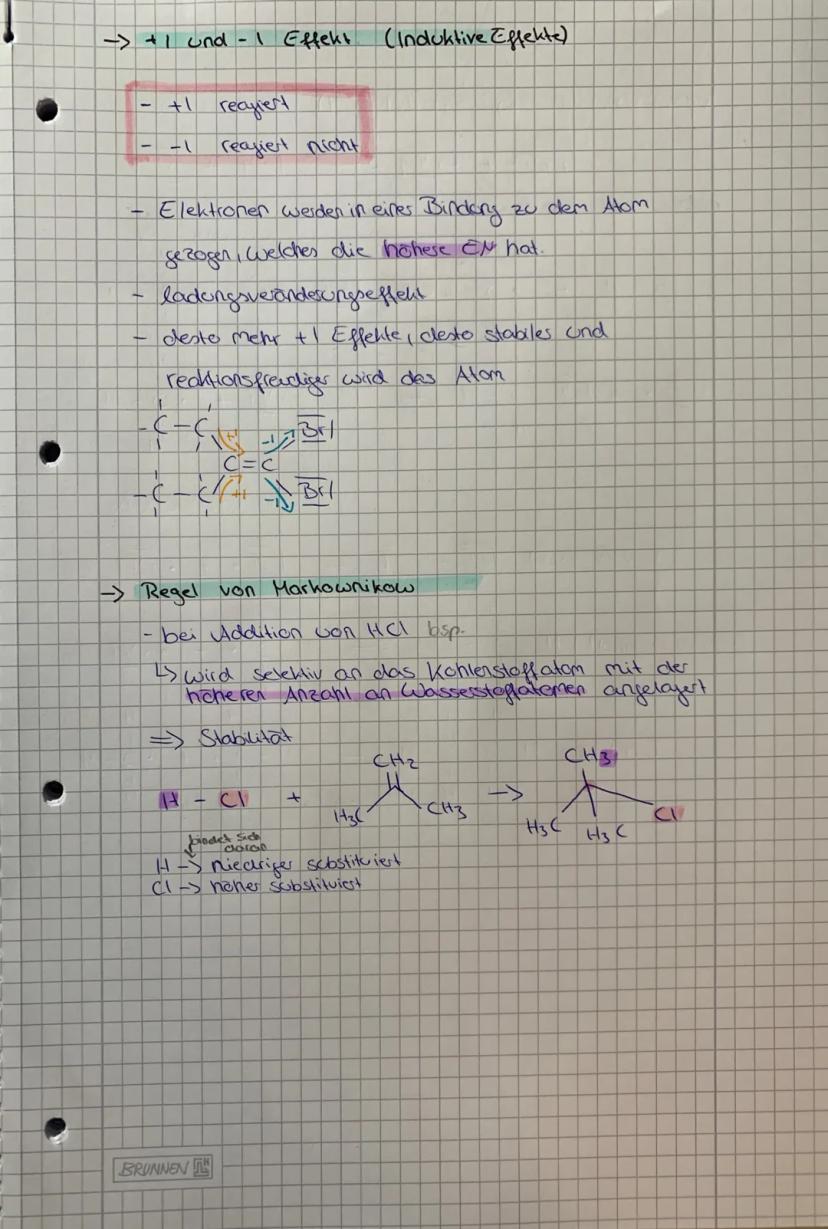 -> +I und -I Effekt (Induktive Effekte)
- +I reagiert
- -I reagiert nicht
- Elektronen werden in einer Bindung zu dem Atom
gezogen, welches die höhere EN hat.
- ladungsveränderungseffekt
- desto mehr +I Effekte, desto stabiler und
reaktionsfreudiger wird das Atom
-C-C +I -I Br
C=C
-C-C +I -I Br
-> Regel von Markownikow
- bei Addition von HCl bsp.
↳ wird selektiv an das Kohlenstoffatom mit der
höheren Anzahl an Wasserstoffatomen angelagert
=> Stabilität
CH2 CH3
H - Cl + H3C CH3 -> H3C H3C Cl
bindet sich
daran
H -> niedriger substituiert
Cl -> höher substituiert
BRUNNEN